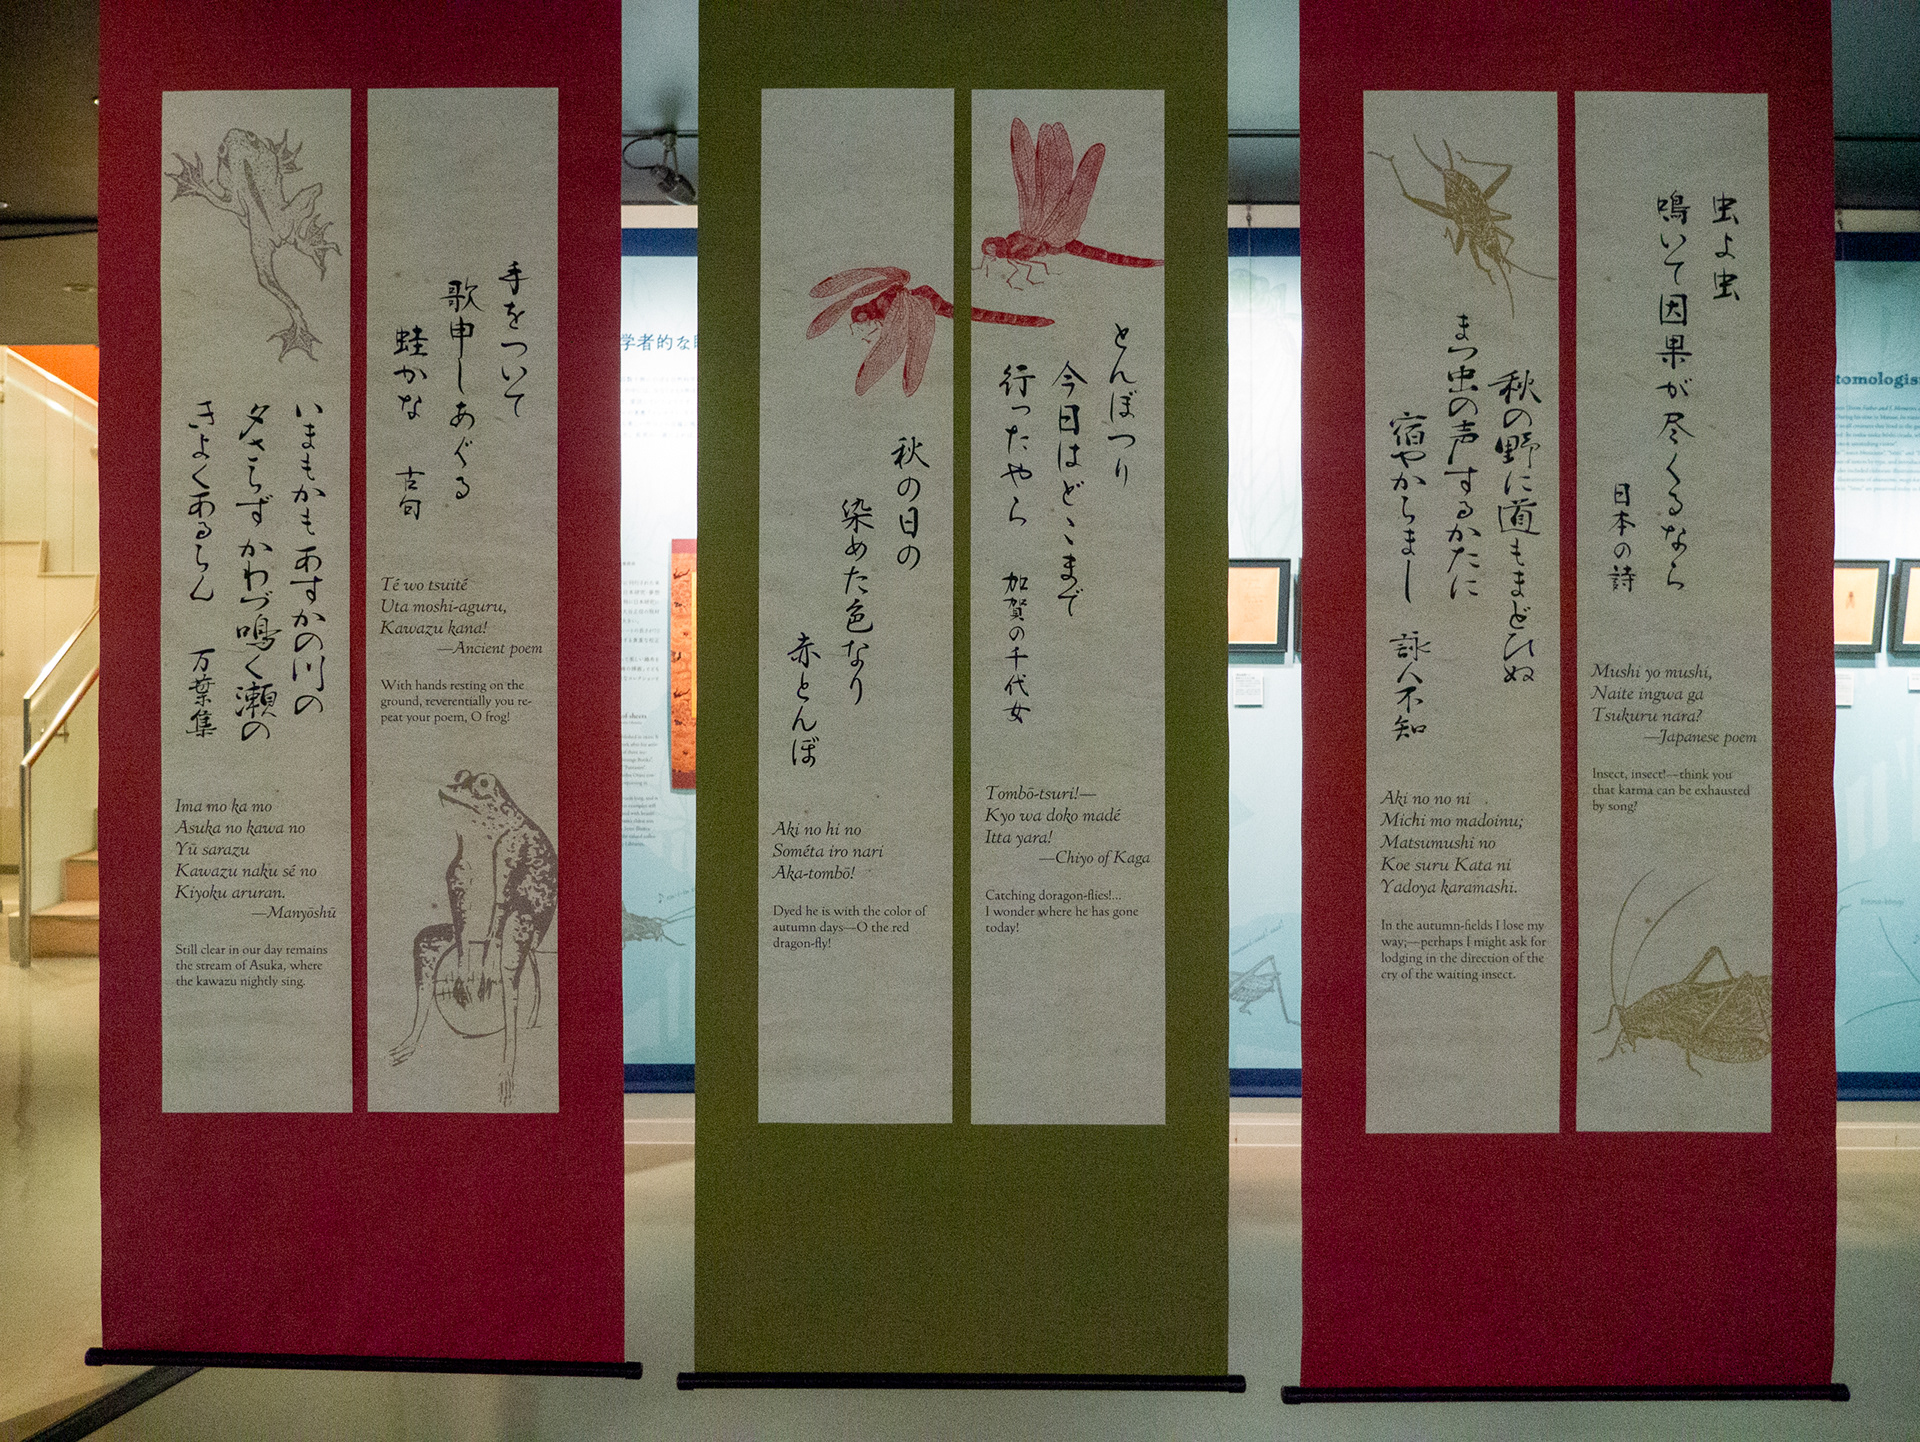 いまもかも あすかの川の
夕さらず かわづ鳴く瀬の
きよくあるらん 万葉集
Ima mo ka mo
Asuka no kawa no
Yū sarazu
Kawazu naku sé no
Kiyoku aruran.
—Manyōshū
Still clear in our day remains
the stream of Asuka, where
the kawazu nightly sing.
手をついて
歌申しあぐる
蛙かな 古句
Té wo tsuité
Uta moshi-aguru,
Kawazu kana!
—Ancient poem
With hands resting on the
ground, reverentially you re-
peat your poem, O frog!
秋の日の
染めた色なり
赤とんぼ
Aki no hi no
Sométa iro nari
Aka-tombō!
Dyed he is with the color of
autumn days—O the red
dragon-fly!
とんぼつり
今日はどこまで
行ったやら 加賀の千代女
Tombō-tsuri!—
Kyo wa doko madé
Itta yara!
—Chiyo of Kaga
Catching doragon-flies!...
I wonder where he has gone
today!
秋の野に道もまどひぬ
まつ虫の声するかたに
宿やからまし 詠人不知
Aki no no ni
Michi mo madoinu;
Matsumushi no
Koe suru Kata ni
Yadoya karamashi.
In the autumn-fields I lose my
way;—perhaps I might ask for
lodging in the direction of the
cry of the waiting insect.
虫よ虫
鳴いて因果が尽くるなら
日本の詩
Mushi yo mushi,
Naite ingwa ga
Tsukuru nara?
—Japanese poem
Insect, insect!—think you
that karma can be exhausted
by song?
学者的な
tomologis